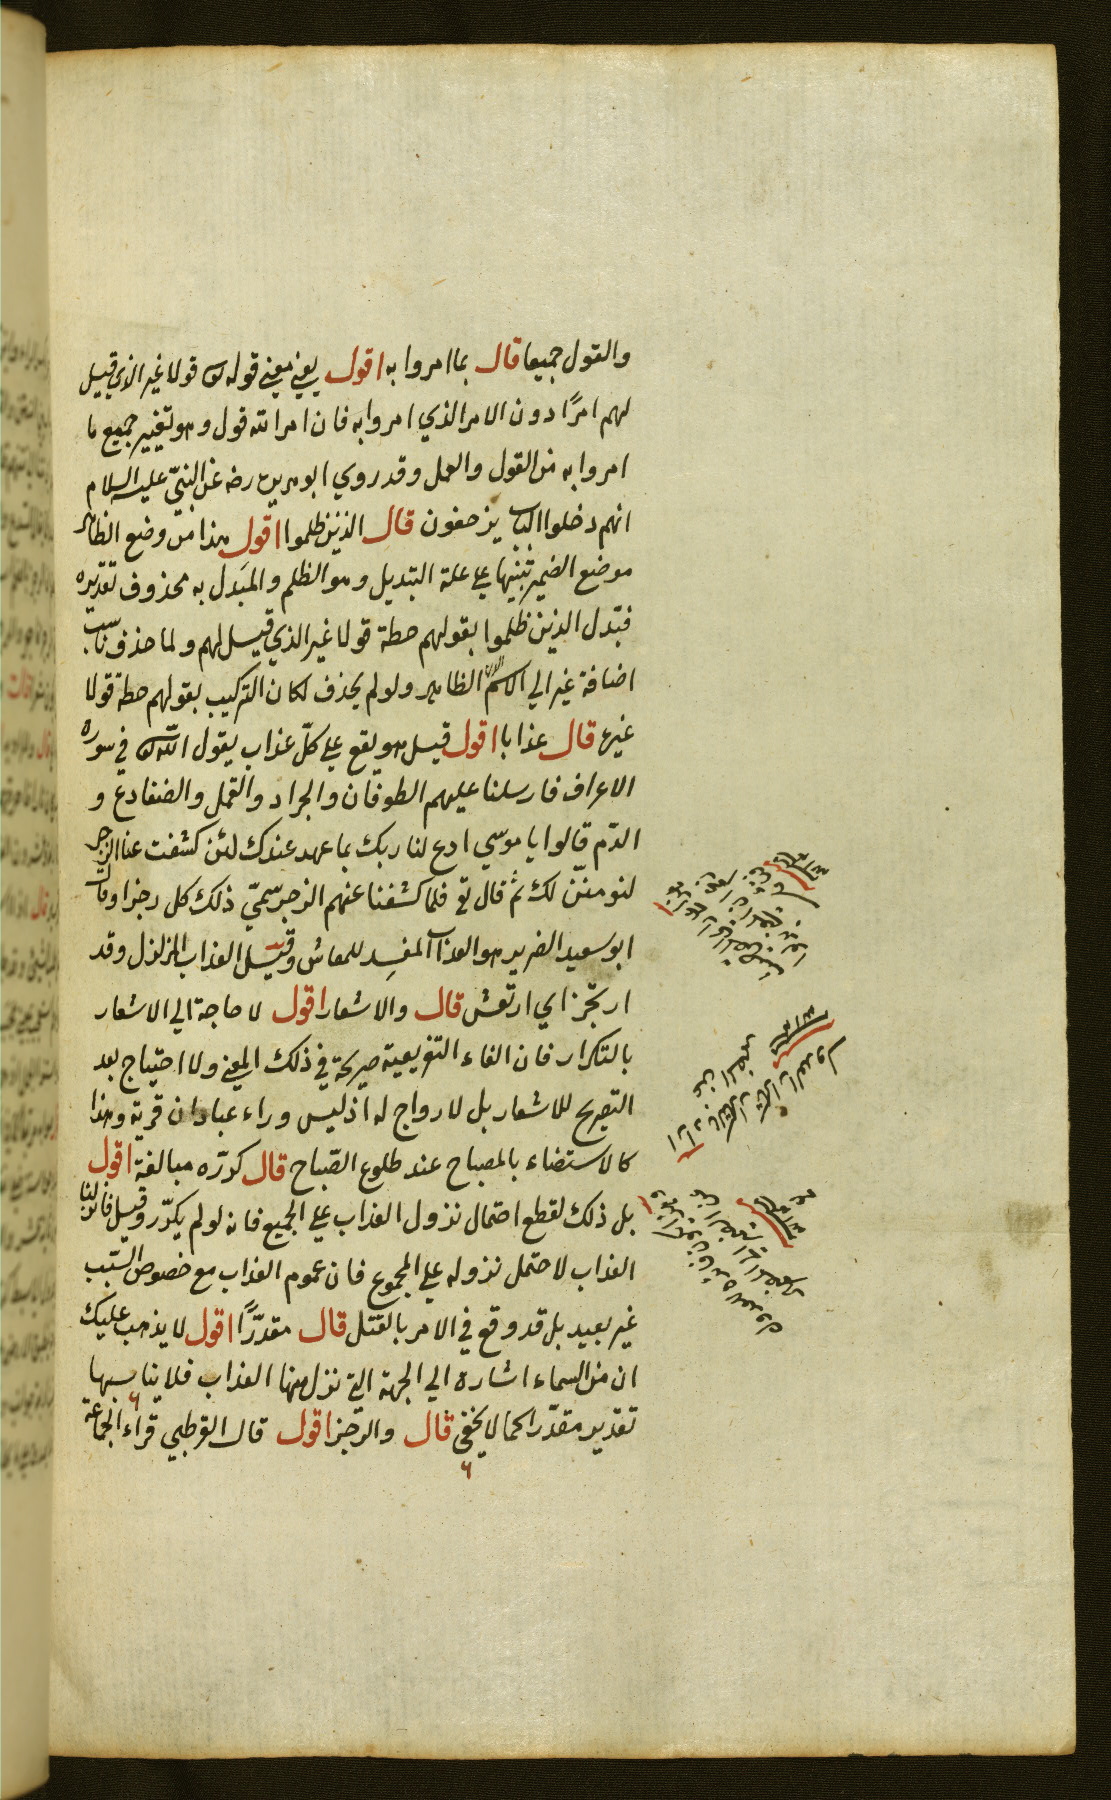 والقول جميعا قال بما امروا به اقول يعني معني قوله تع قولا غير الذي قيل
لهم امرًا دون الامر الذي امروا به فان امر الله قول وهو تغيير جميع ما
امروا به من القول والعمل وقد روي ابو هريرة رضه عن النبيّ عليه السلام
انهم دخلوا الباب يزحفون قال الذين ظلموا اقول هذا من وضع الظاهر
موضع الضمير تنبيها علي علة التبديل وهو الظلم والمبَدل به محذوف تقديره
فبدل الذين ظلموا بقولهم حطة قولا غير الذي قيل لهم ولما حذف ناسب
اضافة غير الي الاسم الظاهر ولو لم يحذف لكان التركيب بقولهم حطة قولا
غيره قال عذابا اقول قيل هو يقع علي كلّ عذاب يقول الله تع في سورة
الاعراف فارسلنا عليهم الطوفان والجراد والقمل والضفادع و
الدّم قالوا يا موسي ادع لنا ربك بما عهد عندك لئن كشفت عنا الرجز
لنومننّ لك ثم قال تع فلما كشفنا عنهم الرجز سمّي ذلك كل رجزا وقال
ابو سعيد الضرير هو العذاب المفسِد للمعاش وقيل العذاب المزلزل وقد
ارتجز اي ارتعش قال والاشعار اقول لا حاجة الي الاشعار
بالتكرار فان الفاء التفريعية صريحة في ذلك المعني ولا احتياج بعد
التصريح للاشعار بل لا رواج له اذ ليس وراء عبادان قرية وهذا
كالاستضاء بالمصباح عند طلوع الصّباح قال كررّه مبالغة اقول
بل ذلك لقطع احتمال نزول العذاب علي الجميع فانه لو لم يكرّر وقيل فانزلنا
العذاب لاحتمل نزوله علي المجموع فان عموم العذاب مع خصوص السّبب
غير بعيد بل قد وقع في الامر بالقتل قال مقدّرًا اقول لا يذهب عليك
ان من السماء اشارة الي الجهة التي نزل منها العذاب فلا يناسبها
تقدير مقدّرا كما لا يخفي قال والرجز اقول قال القرطبي قراء الجماعة